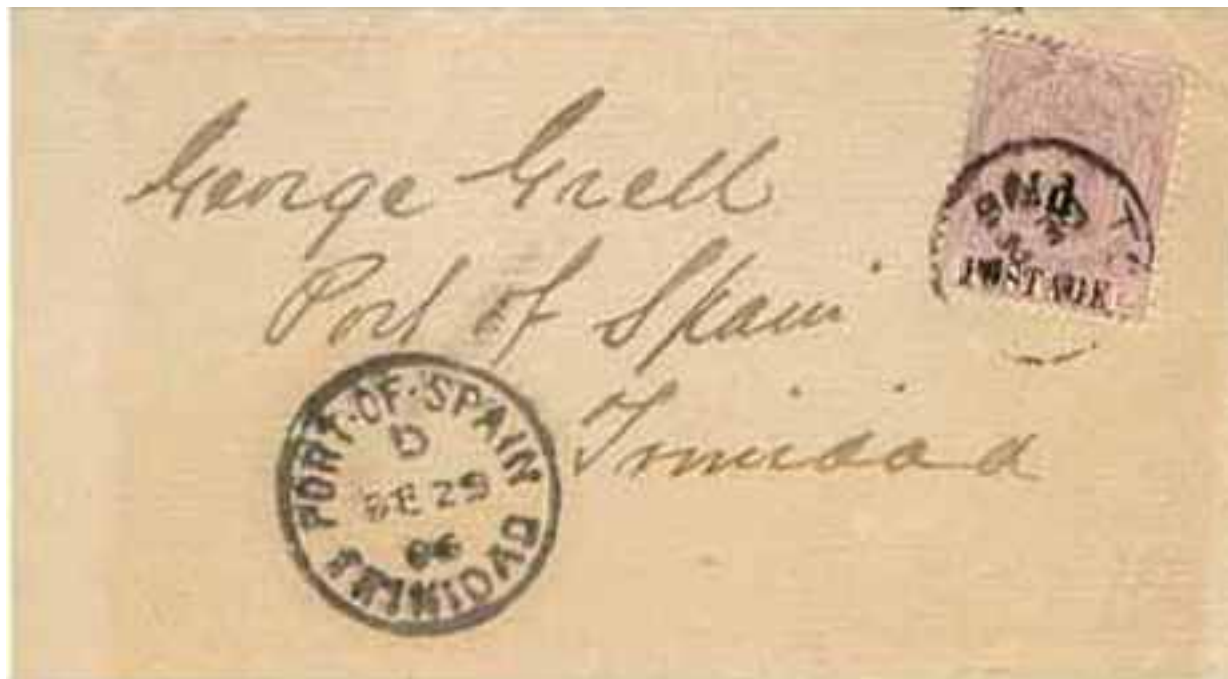 George Grell
Port of Spain
Trinidad
POSTAGE
PORT·OF·SPAIN
D
SE 29
96
TRINIDAD